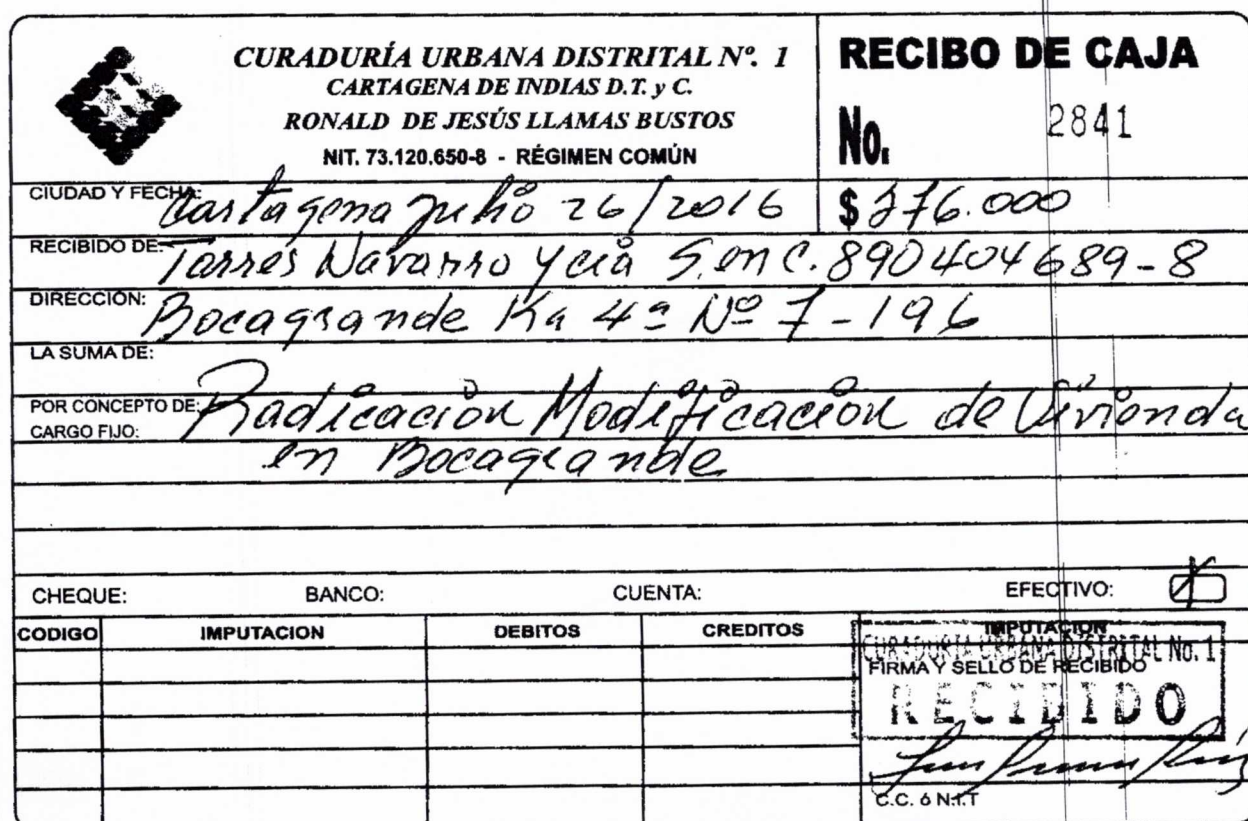 CURADURÍA URBANA DISTRITAL Nº. 1
CARTAGENA DE INDIAS D.T. y C.
RONALD DE JESÚS LLAMAS BUSTOS
NIT. 73.120.650-8 - RÉGIMEN COMÚN
RECIBO DE CAJA
No. 2841
CIUDAD Y FECHA: Cartagena Julio 26/2016
$ 276.000
RECIBIDO DE: Torres Navarro y cia S.en C. 890404689-8
DIRECCIÓN: Bocagrande Ka 4ª Nº 7-196
LA SUMA DE:
POR CONCEPTO DE: Radicación Modificación de Vivienda
CARGO FIJO:
en Bocagrande
CHEQUE: BANCO: CUENTA: EFECTIVO: X
CODIGO IMPUTACION DEBITOS CREDITOS IMPUTACION
CURADURIA URBANA DISTRITAL No. 1
FIRMA Y SELLO DE RECIBIDO
RECIBIDO
C.C. ó N.I.T